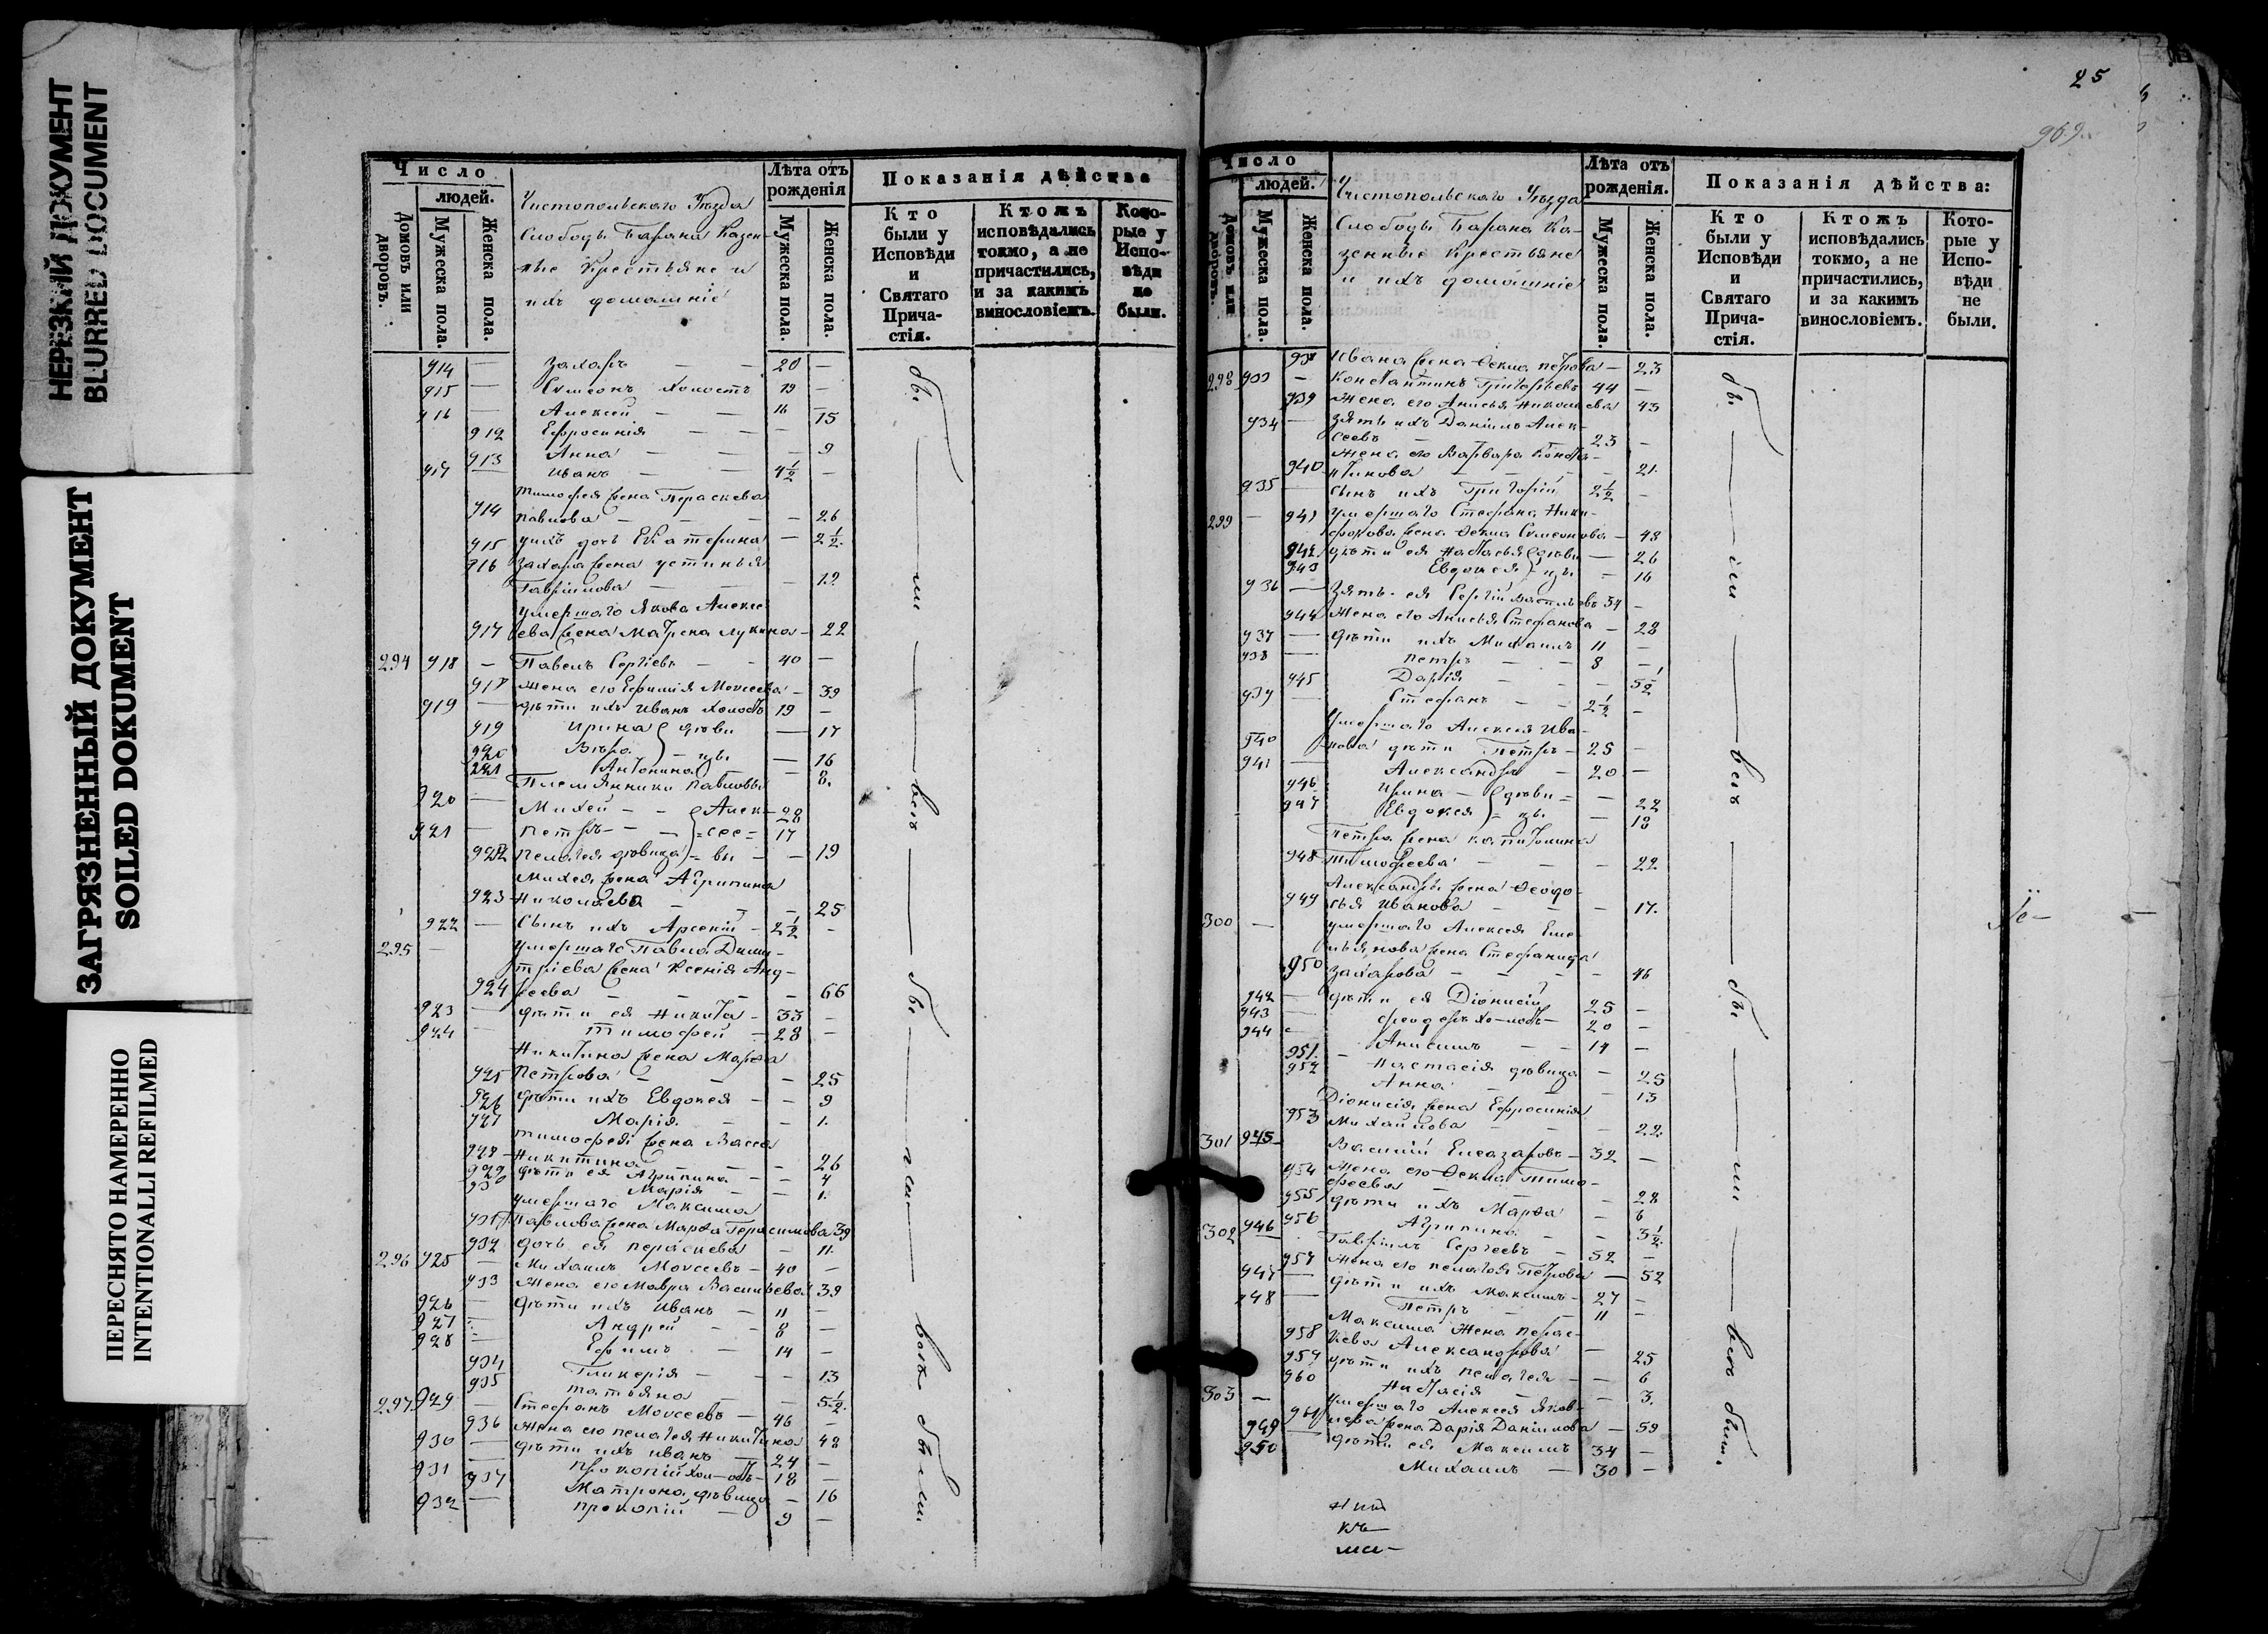 НЕРЕЗКИЙ ДОКУМЕНТ
BLURRED DOCUMENT
ЗАГРЯЗНЕННЫЙ ДОКУМЕНТ
SOILED DOKUMENT
ПЕРЕСНЯТО НАМЕРЕННО
INTENTIONALLI REFILMED
Число
людей.
Домовъ или дворовъ.
Мужеска пола.
Женска пола.
Чистопольскаго Уѣзда
Слободы Барана Казен-
ные Крестьяне и
ихъ домашніе
Лѣта отъ рожденія
Мужеска пола.
Женска пола.
Показанія дѣйства
Кто были у Исповѣди и Святаго Прича-стія.
Ктожъ исповѣдались токмо, а не причастились, и за какимъ винословіемъ.
Кото-рые у Испо-вѣди не были.
914 — Захаръ — — 20 —
915 — Симеонъ холостъ 19 —
916 — Алексей — — 16 —
912 Ефросинія — — — 15
913 Анна — — — 9
917 — Иванъ — — 4½ —
Тимофея жена Параскева
914 Павлова — — — 26
915 ихъ дочь Екатерина — 2½.
916 Захара жена Устинья
Гаврилова — — — 19
умершаго Якова Алексе
917 ева жена Матрена Лукина — 22
294 918 — Павелъ Сергіевъ — — 40 —
918 жена его Ефимія Моисеева — 39
919 — дѣти ихъ Иванъ холостъ 19 —
919 Ирина } дѣви — 17
920 Вѣра } — цы — 16
921 Антонина — 8.
Племянники Павловы
920 — Михей — — } Алек- 28
921 — Петръ — — } =сее= 17
922 Пелагея дѣвица } = вы — — 19
Михея жена Агрипина
923 Николаева — — — 25
922 — Сынъ ихъ Арсеній — 2½ —
295 — умершаго Павла Дими-
тріева жена Ксенія Анд-
924 реева — — — — 66
923 — дѣти ея Никита — 33 —
924 — Тимофей — 28 —
Никитина жена Марфа
925 Петрова — — — 25
926 дѣти ихъ Евдокея — — 9
927 Марія — — 1.
Тимофея жена Васса
928 Никитина — — — 26
929 дѣти ея Агрипина — — 4
930 Марія — — 1.
умершаго Максима
931 Павлова жена Марфа Герасимова 39
932 дочь ея Параскева — 11.
296 925 — Михаилъ Моисеевъ — 40 —
933 Жена его Мавра Васильева 39
926 — дѣти ихъ Иванъ — 11 —
927 — Андрей — — 8 —
928 — Ефимъ — 14 —
934 Гликерія — — — 13
935 Татьяна — — 5½.
297 929 — Стефанъ Моисеевъ — 46 —
936 Жена его Пелагея Никитина 48
930 — дѣти ихъ Иванъ — 24 —
931 Прокопій хол—остъ — 18 —
937 Матрона дѣвица — 16
932 — Прокопій — 9 —
25
969.
Число
людей.
Домовъ или дворовъ.
Мужеска пола.
Женска пола.
Чистопольскаго Уѣзда
Слободы Барана Ка-
зенные Крестьяне
и ихъ домашніе
Лѣта отъ рожденія.
Мужеска пола.
Женска пола.
Показанія дѣйства:
Кто были у Исповѣди и Святаго Прича-стія.
Ктожъ исповѣдались токмо, а не причастились, и за какимъ винословіемъ.
Кото-рые у Испо-вѣди не были.
938 Ивана жена Фекла Петрова — 23
298 933 — Константинъ Григорьевъ 44 —
939 Жена его Анисья Николаева 43
934 — зять ихъ Даніилъ Алек-
сеевъ — 23 —
Жена его Варвара Конста-
940 нтинова — — — 21.
935 — сынъ ихъ Григорій 2½ —
299 — 941 умершаго Стефана Ники-
форова жена Фекла Симеонова — 48
942 дѣти ея Настасья } дѣви — 26
943 Евдокея } цы — 16
936 — Зять ея Сергій Васильевъ 34 —
944 Жена его Анисья Стефанова — 28
937 — дѣти ихъ Михаилъ 11 —
938 — Петръ — — 8 —
945 Дарія — — — 5½
939 — Стефанъ — — 2½ —
умершаго Алексея Ива-
940 нова дѣти Петръ — 25 —
941 — Александръ — 20 —
946 Ирина — } дѣви = — 22
947 Евдокея } = цы — 18
Петра жена Капитолина
948 Тимофеева — — — 22
Александра жена Феодо
949 сья Иванова — — — 17.
300 — умершаго Алексея Еме-
льянова жена Стефанида
950 Захарова — — — — 46
942 — дѣти ея Діонисій 25 —
943 — Феодоръ хо—лостъ — 20 —
944 — Анисимъ — — 14 —
951. — Настасія дѣвица — 25
952 Анна — — — 13
Діонисія жена Ефросинія
953 Михайлова — — — 22.
301 945 — Василій Елеазаровъ — 32 —
954 Жена его Фекла Тимо-
феева — — — 28
955 дѣти ихъ Марфа — 6
956 Агрипина — — 3½.
302 946 Гавріилъ Сергеевъ — 52 —
957 Жена его Пелагея Петрова — 52
947 — дѣти ихъ Максимъ — 27 —
948 — Петръ — — 11 —
Максима Жена Парас-
958 кева Александрова — 25
959 дѣти ихъ Пелагея — — 6
960 Настасія — — 3.
303 — умершаго Алексея Яков-
961 лева жена Дарія Даніилова — 59
949 — дѣти ея Максимъ 34 —
950 Михаилъ — 30 —